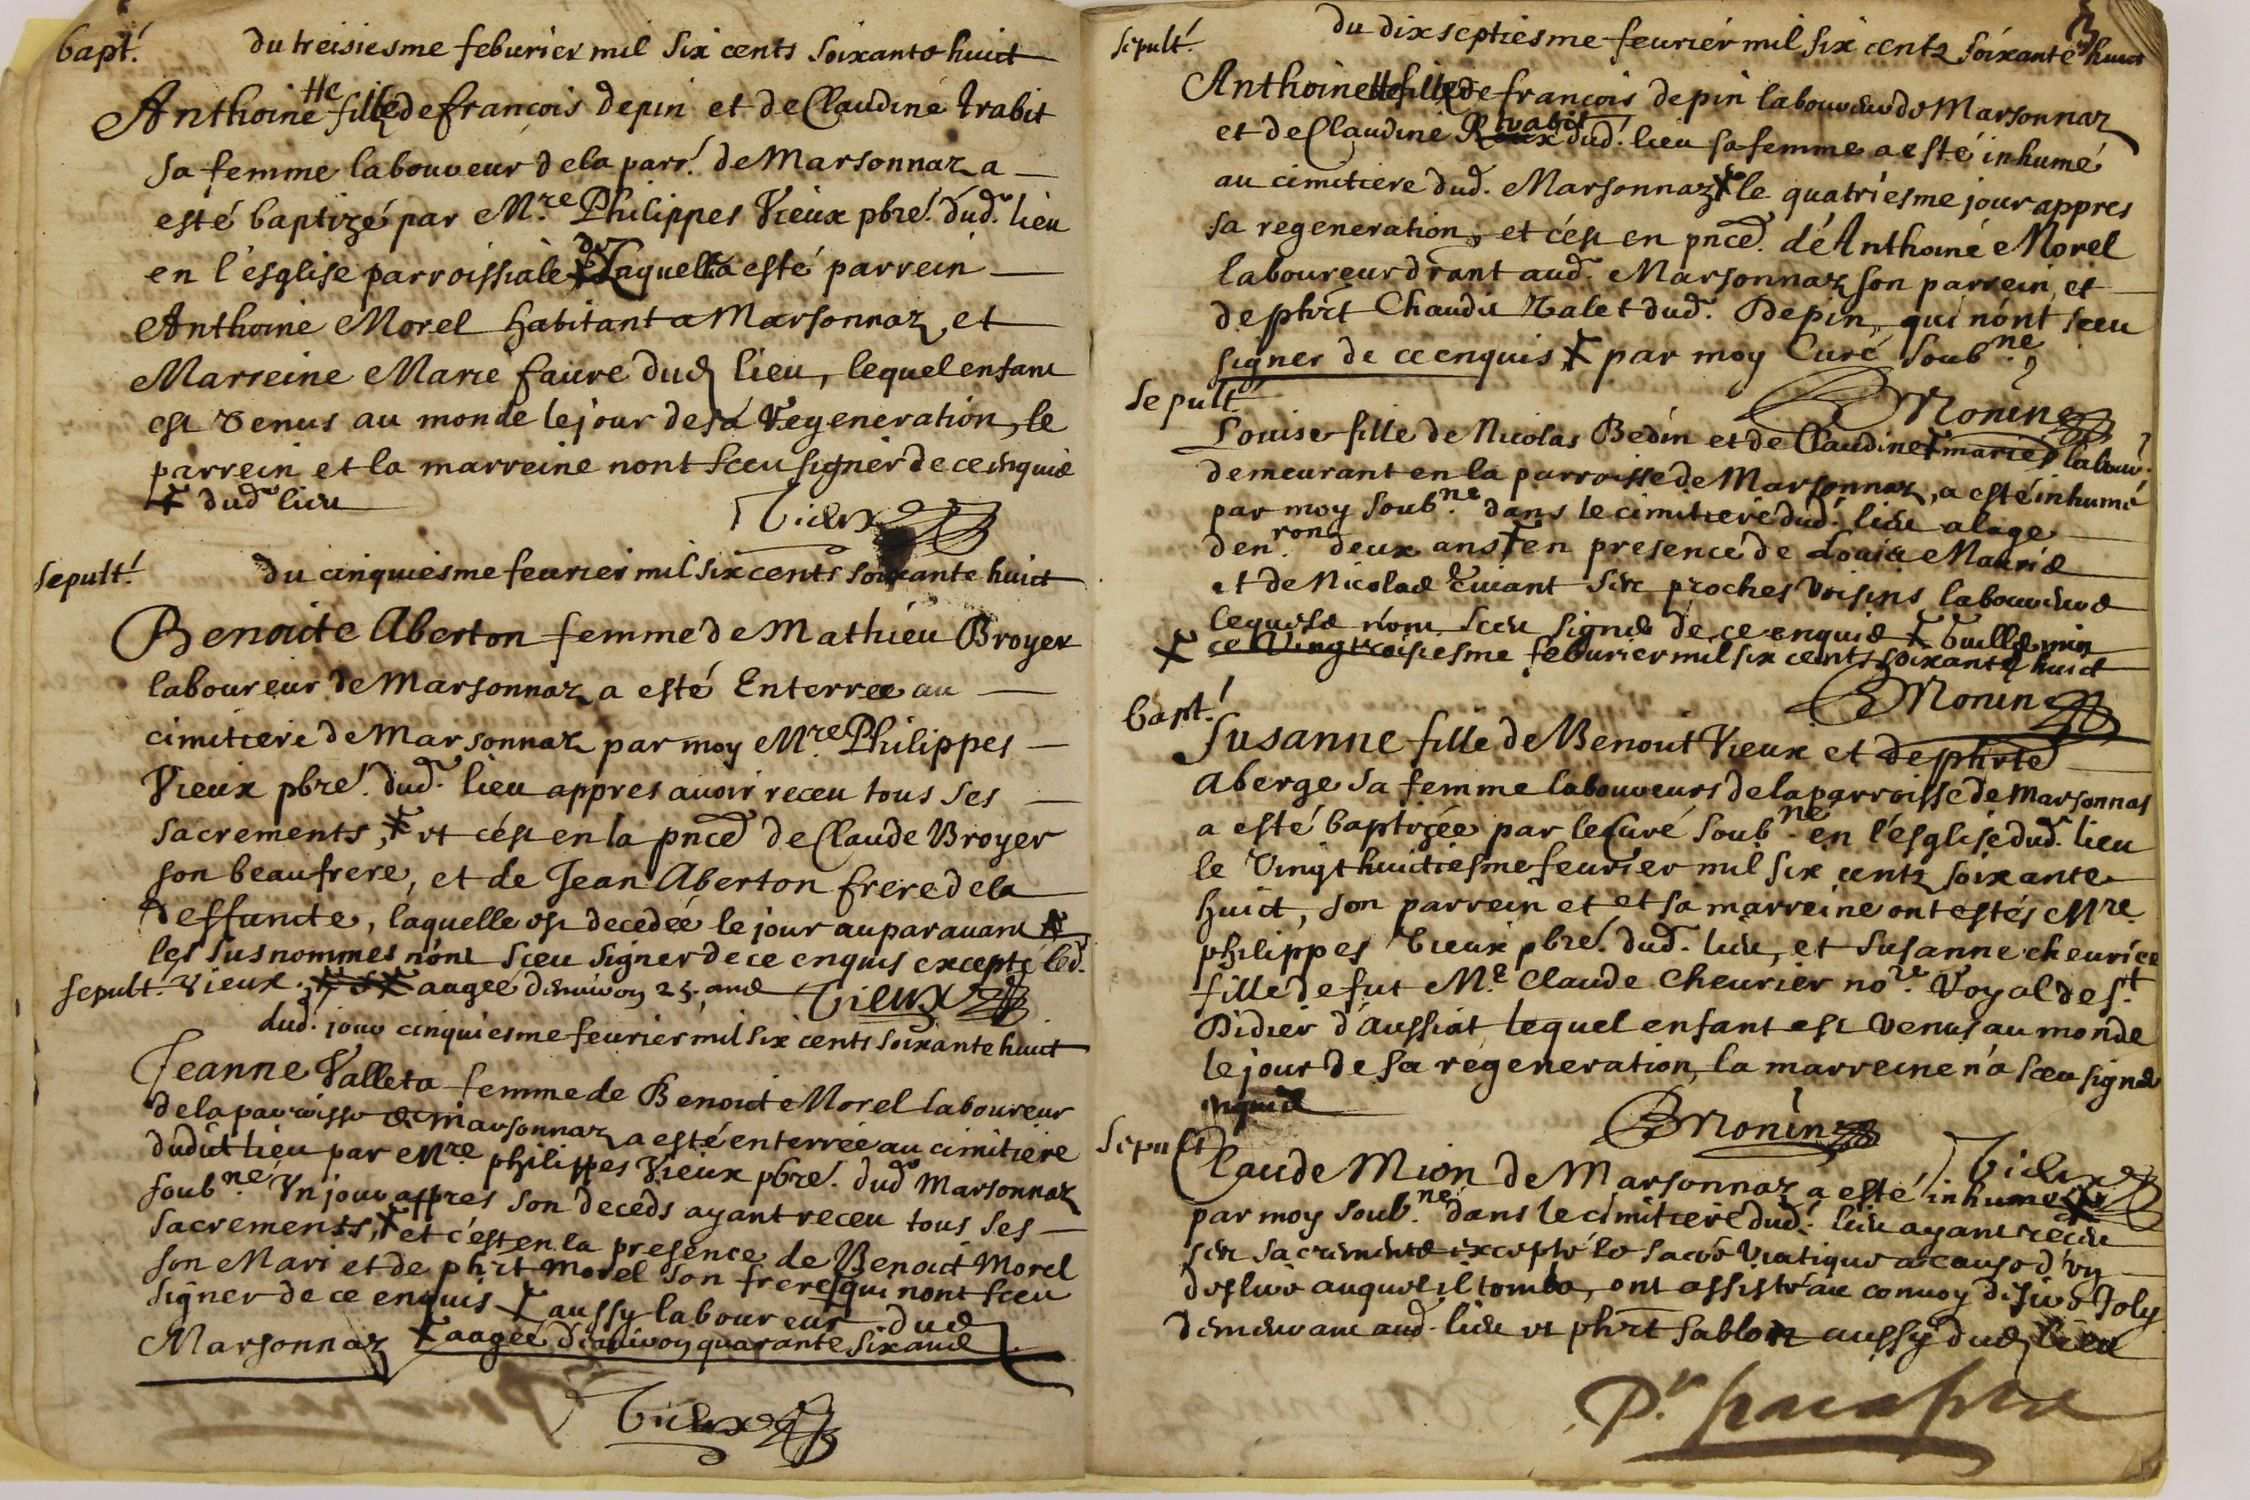 bapt.
du treisiesme feburier mil six cents soixante huict
Anthoinette fille de françois depin et de Claudine trabit
sa femme laboureur de la parr. de Marsonnaz a
esté baptizé par Mre. Philippes Vieux pbre. dud. lieu
en l'esglise parroissiale de Laquelle a esté parrein
Anthoine Morel habitant a Marsonnaz et
Marreine Marie faure dud lieu, lequel enfant
est venus au monde le jour de sa regeneration, le
parrein et la marreine nont sceu signer de ce enquis
dud lieu
Vieux
Sepult.
du cinquiesme feurier mil six cents soixante huict
Benoite Aberton femme de Mathieu Broyer
laboureur de Marsonnaz a esté Enterree au
cimitiere de Marsonnaz par moy Mre Philippes
Vieux pbre. dud. lieu appres auoir receu tous ses
sacrements, et cest en la pnce de Claude Broyer
son beaufrere, et de Jean Aberton frere de la
deffuncte, laquelle est decedée le jour auparauant
les susnommes n'ont sceu signer de ce enquis excepté led.
Vieux. aagee denuiron 25. ans Vieux
Sepult.
dud. jour cinquiesme feurier mil six cents soixante huict
Jeanne Valleta femme de Benoict Morel laboureur
de la parroisse de marsonnaz a esté enterrée au cimitiere
dudict lieu par Mre philippes Vieux pbre. dud Marsonnaz
soubne. Un jour appres son deceds ayant receu tous ses
sacrements, et c'est en la presence de Benoict Morel
son Mari et de phrt Morel son frere qui nont sceu
signer de ce enquis aussy laboureur dud
Marsonnaz aagée denuiron quarante six ans
Vieux
Sepult.
du dixseptiesme feurier mil six cents soixante huict
Anthoinette fille de françois depin laboureur de Marsonnaz
et de Claudine trabit dud. lieu sa femme a esté inhumé
au cimitiere dud. Marsonnaz le quatriesme jour appres
sa regeneration, et cest en pnce. de Anthoine Morel
laboureur drant aud. Marsonnaz son parrein, et
de phrt Chaudit dud. Depin, qui n'ont sceu
signer de ce enquis par moy Curé soubne.
Monin
Sepult
Louise fille de Nicolas Bedin et de Claudine marie labour.
demeurant en la parroisse de Marsonnaz, a esté inhumé
par moy soubne. dans le cimitiere dud. lieu a lage
denron deux ans en presence de Louis Maurie
et de Nicolas ses proches voisins laboureurs
lequels n'ont sceu signer de ce enquis Guillemin
ce Vingtroisiesme feburier mil six cents soixante huict
Monin
bapt.
Susanne fille de Benoit Vieux et de phrte
Aberge sa femme laboureurs de la parroisse de Marsonnas
a esté baptizée par le Curé soubne en l'esglise dud. lieu
le Vingt huictiesme feurier mil six cents soixante
huict, son parrein et et sa marreine ont estés Mre
philippes Vieux pbre. dud. lieu, et Susanne cheurier
fille de fut Me. Claude Cheurier nore. Royal de St
Didier d'aussiat lequel enfant est venus au monde
le jour de sa regeneration, la marreine n'a sceu signer
enquise
Monin
Vieux
Sepult
Claude Mion de Marsonnaz a esté inhumé
par moy soubne. dans le cimitiere dud. lieu ayant receu
ses sacrements excepté le sacré Viatique a cause d'un
desluo auquel il tomba, ont assisté au conuoy de Joly
demeurant aud. lieu et phrt Sablon aussy dud lieu